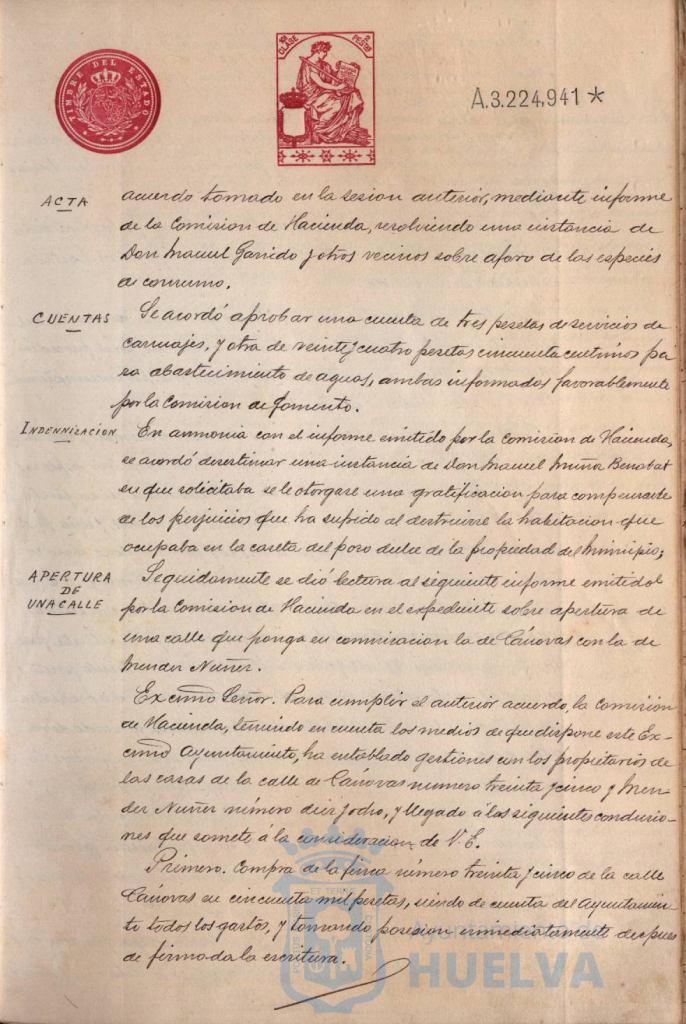 TIMBRE DEL ESTADO
10ª CLASE
2 PESTAS
A.3.224,941*
ACTA
acuerdo tomado en la sesion anterior, mediante informe
de la Comision de Hacienda, resolviendo una instancia de
Don Manuel Garrido y otros vecinos sobre aforo de las especies
de consumo.
CUENTAS
Se acordó aprobar una cuenta de tres pesetas de servicios de
carruajes, y otra de veinte y cuatro pesetas cincuenta centimos pa
ra abastecimiento de aguas, ambas informados favorablemente
por la Comision de fomento.
INDENNIZACION
En armonia con el informe emitido por la Comision de Hacienda,
se acordó desestimar una instancia de Don Manuel Muñiz Benabat
en que solicitaba se le otorgase una gratificacion para compensarle
de los perjuicios que ha sufrido al destruirse la habitacion que
ocupaba en la caseta del pozo dulce de la propiedad del Municipio;
APERTURA
DE
UNA CALLE
Seguidamente se dió lectura al siguiente informe emitido
por la Comision de Hacienda en el expediente sobre apertura de
una calle que ponga en comunicacion la de Cánovas con la de
Mendez Nuñez.
Excmo Señor. Para cumplir el anterior acuerdo, la Comisión
de Hacienda, teniendo en cuenta los medios de que dispone este Ex-
cmo Ayuntamiento, ha entablado gestiones con los propietarios de
las casas de la calle de Cánovas numero treinta y cinco y Men-
dez Nuñez número diez y ocho, y llegado á las siguientes conclusio-
nes que somete á la consideracion de V.E.
Primero. Compra de la finca número treinta y cinco de la calle
Cánovas en cincuenta mil pesetas, siendo de cuenta del Ayuntamien-
to todos los gastos, y tomando posesion inmediatamente despues
de firmada la escritura.
Ayuntamiento de
HUELVA